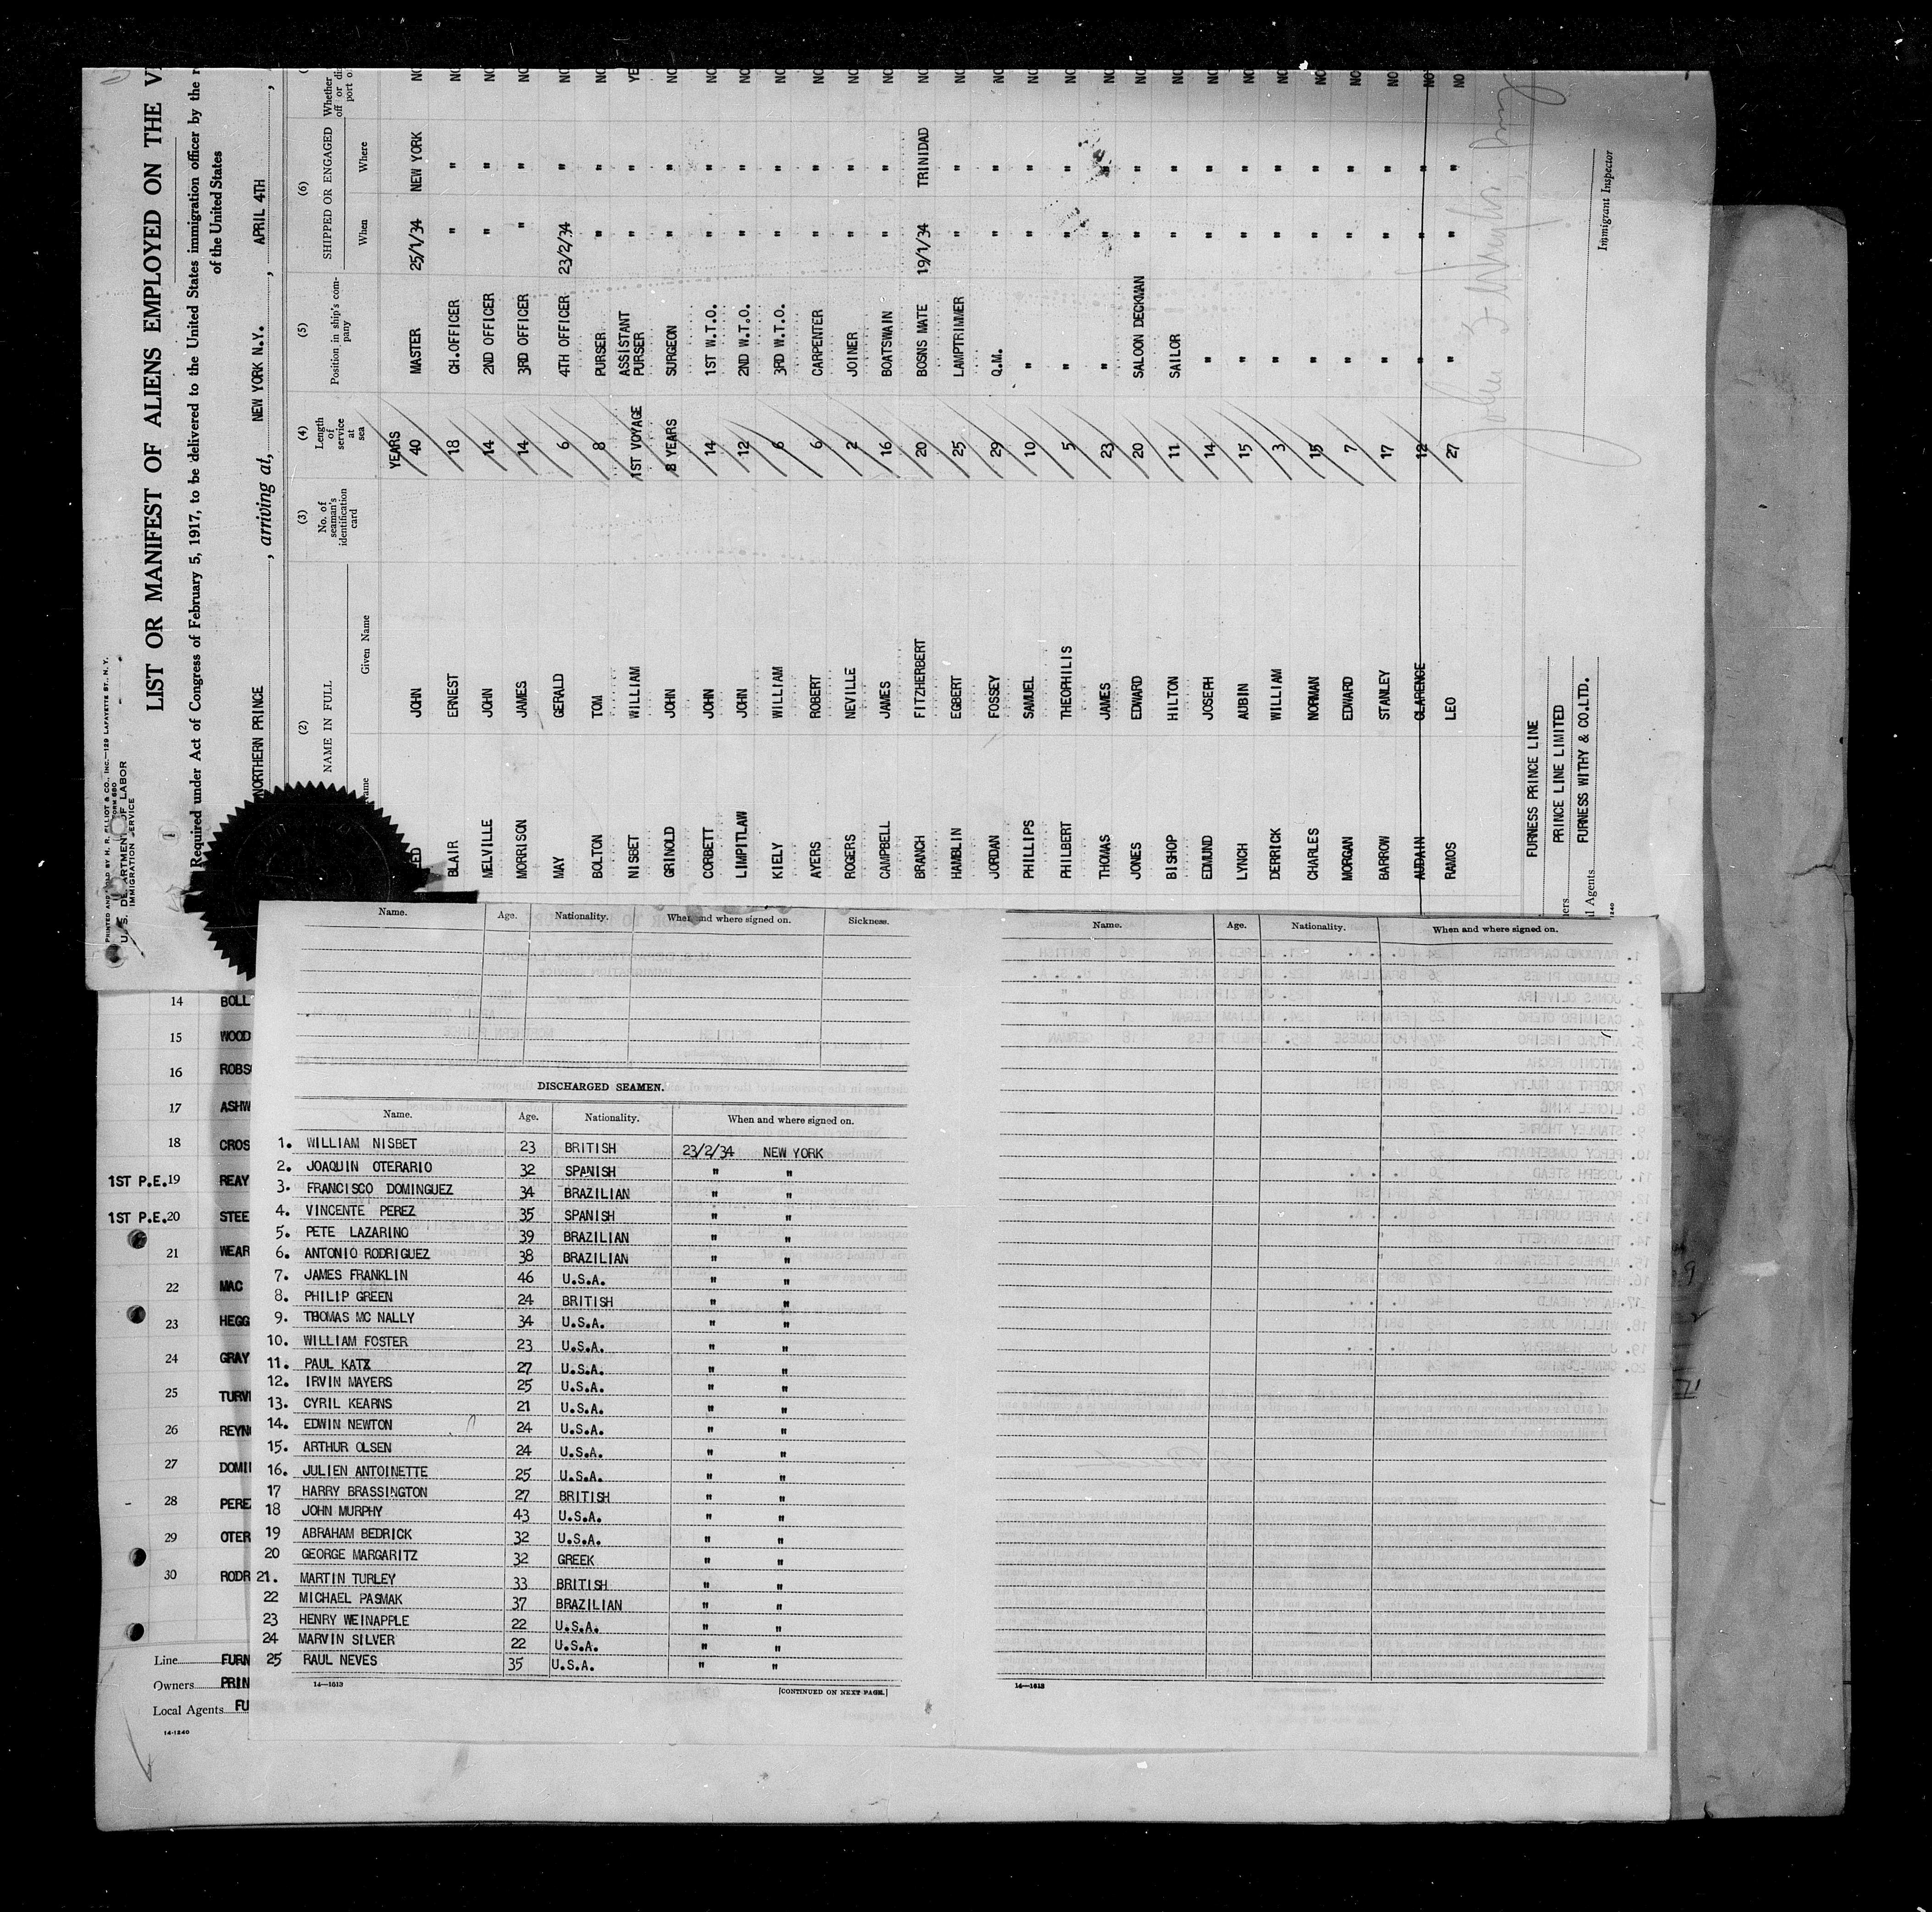 PRINTED AND SOLD BY H. R. ELLIOT & CO., INC.—129 LAFAYETTE ST., N. Y.
FORM 680
U. S. DEPARTMENT OF LABOR
IMMIGRATION SERVICE
LIST OR MANIFEST OF ALIENS EMPLOYED ON THE
Required under Act of Congress of February 5, 1917, to be delivered to the United States immigration officer by the
of the United States
NORTHERN PRINCE , arriving at, NEW YORK N.Y. , APRIL 4TH ,
(2) (3) (4) (5) (6)
NAME IN FULL No. of seaman's identification card Length of service at sea Position in ship's company SHIPPED OR ENGAGED Whether
Given Name When Where
YEARS
JOHN 40 MASTER 25/1/34 NEW YORK NO
BLAIR ERNEST 18 CH.OFFICER " " NO
MELVILLE JOHN 14 2ND OFFICER " " NO
MORRISON JAMES 14 3RD OFFICER " " NO
MAY GERALD 6 4TH OFFICER 23/2/34 " NO
BOLTON TOM 8 PURSER " " NO
NISBET WILLIAM 1ST VOYAGE ASSISTANT PURSER " " YE
GRINOLD JOHN 8 YEARS SURGEON " " NO
CORBETT JOHN 14 1ST W.T.O. " " NO
LIMPITLAW JOHN 12 2ND W.T.O. " " NO
KIELY WILLIAM 6 3RD W.T.O. " " NO
AYERS ROBERT 6 CARPENTER " " NO
ROGERS NEVILLE 2 JOINER " " NO
CAMPBELL JAMES 16 BOATSWAIN " " NO
BRANCH FITZHERBERT 20 BOSNS MATE 19/1/34 TRINIDAD NO
HAMBLIN EGBERT 25 LAMPTRIMMER " " NO
JORDAN FOSSEY 29 Q.M. " " NO
PHILLIPS SAMUEL 10 " " " NO
PHILBERT THEOPHILIS 5 " " " NO
THOMAS JAMES 23 " " " NO
JONES EDWARD 20 SALOON DECKMAN " " NO
BISHOP HILTON 11 SAILOR " " NO
EDMUND JOSEPH 14 " " " NO
LYNCH AUBIN 15 " " " NO
DERRICK WILLIAM 3 " " " NO
CHARLES NORMAN 15 " " " NO
MORGAN EDWARD 7 " " " NO
BARROW STANLEY 17 " " " NO
AUDAIN CLARENCE 12 " " " NO
RAMOS LEO 27 " " " NO
FURNESS PRINCE LINE
PRINCE LINE LIMITED
FURNESS WITHY & CO.LTD.
Immigrant Inspector
14 BOLL
15 WOOD
16 ROBS
17 ASHW
18 CROS
1ST P.E. 19 REAY
1ST P.E. 20 STEE
21 WEAR
22 MAC
23 HEGG
24 GRAY
25 TURV
26 REYN
27 DOMI
28 PERE
29 OTER
30 RODR
Line FURN
Owners PRIN
Local Agents FU
14-1240
Name. Age. Nationality. When and where signed on. Sickness.
DISCHARGED SEAMEN.
Name. Age. Nationality. When and where signed on.
1. WILLIAM NISBET 23 BRITISH 23/2/34 NEW YORK
2. JOAQUIN OTERARIO 32 SPANISH " "
3. FRANCISCO DOMINGUEZ 34 BRAZILIAN " "
4. VINCENTE PEREZ 35 SPANISH " "
5. PETE LAZARINO 39 BRAZILIAN " "
6. ANTONIO RODRIGUEZ 38 BRAZILIAN " "
7. JAMES FRANKLIN 46 U.S.A. " "
8. PHILIP GREEN 24 BRITISH " "
9. THOMAS MC NALLY 34 U.S.A. " "
10. WILLIAM FOSTER 23 U.S.A. " "
11. PAUL KATZ 27 U.S.A. " "
12. IRVIN MAYERS 25 U.S.A. " "
13. CYRIL KEARNS 21 U.S.A. " "
14. EDWIN NEWTON 24 U.S.A. " "
15. ARTHUR OLSEN 24 U.S.A. " "
16. JULIEN ANTOINETTE 25 U.S.A. " "
17 HARRY BRASSINGTON 27 BRITISH " "
18 JOHN MURPHY 43 U.S.A. " "
19 ABRAHAM BEDRICK 32 U.S.A. " "
20 GEORGE MARGARITZ 32 GREEK " "
21. MARTIN TURLEY 33 BRITISH " "
22 MICHAEL PASMAK 37 BRAZILIAN " "
23 HENRY WEINAPPLE 22 U.S.A. " "
24 MARVIN SILVER 22 U.S.A. " "
25 RAUL NEVES 35 U.S.A. " "
14—1613
[CONTINUED ON NEXT PAGE.]
Name. Age. Nationality. When and where signed on.
14—1613